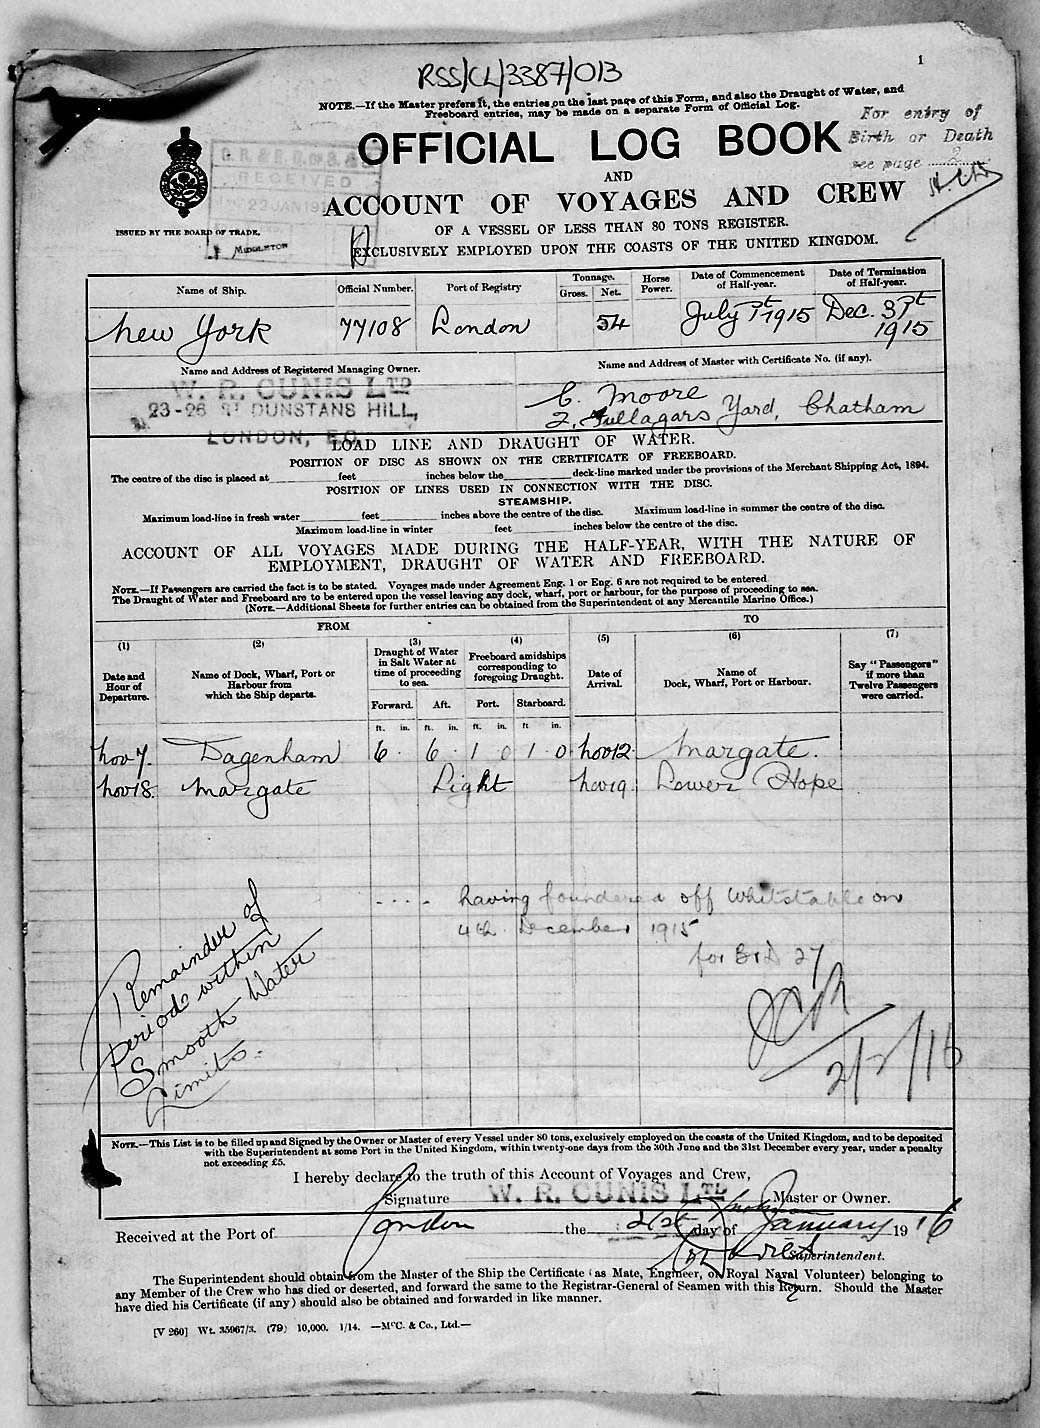 1
RSS/CL/3387/013
NOTE.—If the Master prefers it, the entries on the last page of this Form, and also the Draught of Water, and
Freeboard entries, may be made on a separate Form of Official Log.
For entry of
Birth or Death
see page
OFFICIAL LOG BOOK
AND
ACCOUNT OF VOYAGES AND CREW
OF A VESSEL OF LESS THAN 80 TONS REGISTER.
EXCLUSIVELY EMPLOYED UPON THE COASTS OF THE UNITED KINGDOM.
RECEIVED
22 JAN 19
ISSUED BY THE BOARD OF TRADE.
MIDDLETON
Name of Ship. Official Number. Port of Registry Tonnage. Gross. Net. Horse Power. Date of Commencement of Half-year. Date of Termination of Half-year.
New York 77108 London 54 July 1st 1915 Dec. 31st 1915
Name and Address of Registered Managing Owner. Name and Address of Master with Certificate No. (if any).
W. R. CUNIS LTD
23-26 ST DUNSTANS HILL,
LONDON, E.C.
C. Moore
2, Fullagars Yard, Chatham
LOAD LINE AND DRAUGHT OF WATER.
POSITION OF DISC AS SHOWN ON THE CERTIFICATE OF FREEBOARD.
The centre of the disc is placed at feet inches below the deck-line marked under the provisions of the Merchant Shipping Act, 1894.
POSITION OF LINES USED IN CONNECTION WITH THE DISC.
STEAMSHIP.
Maximum load-line in fresh water feet inches above the centre of the disc. Maximum load-line in summer the centre of the disc.
Maximum load-line in winter feet inches below the centre of the disc.
ACCOUNT OF ALL VOYAGES MADE DURING THE HALF-YEAR, WITH THE NATURE OF
EMPLOYMENT, DRAUGHT OF WATER AND FREEBOARD.
NOTE.—If Passengers are carried the fact is to be stated. Voyages made under Agreement Eng. 1 or Eng. 6 are not required to be entered
The Draught of Water and Freeboard are to be entered upon the vessel leaving any dock, wharf, port or harbour, for the purpose of proceeding to sea.
(NOTE.—Additional Sheets for further entries can be obtained from the Superintendent of any Mercantile Marine Office.)
FROM TO
(1) (2) (3) (4) (5) (6) (7)
Date and Hour of Departure. Name of Dock, Wharf, Port or Harbour from which the Ship departs. Draught of Water in Salt Water at time of proceeding to sea. Freeboard amidships corresponding to foregoing Draught. Date of Arrival. Name of Dock, Wharf, Port or Harbour. Say "Passengers" if more than Twelve Passengers were carried.
Forward. Aft. Port. Starboard.
ft. in. ft. in. ft. in. ft in.
Nov 7. Dagenham 6. 6. 1 0 1.0 Nov 12. Margate.
Nov 18. Margate Light Nov 19. Lower Hope
.... having foundered off Whitstable on
4th December 1915
for
Remainder of
period within
Smooth Water
Limits.
2/2/16
NOTE.—This List is to be filled up and Signed by the Owner or Master of every Vessel under 80 tons, exclusively employed on the coasts of the United Kingdom, and to be deposited
with the Superintendent at some Port in the United Kingdom, within twenty-one days from the 30th June and the 31st December every year, under a penalty
not exceeding £5.
I hereby declare to the truth of this Account of Voyages and Crew,
Signature W. R. CUNIS LTD. Master or Owner.
Received at the Port of London the 21st day of January 1916
Superintendent.
The Superintendent should obtain from the Master of the Ship the Certificate (as Mate, Engineer, or Royal Naval Volunteer) belonging to
any Member of the Crew who has died or deserted, and forward the same to the Registrar-General of Seamen with this Return. Should the Master
have died his Certificate (if any) should also be obtained and forwarded in like manner.
[V 260] Wt. 35967/3. (79) 10,000. 1/14. —McC. & Co., Ltd.—